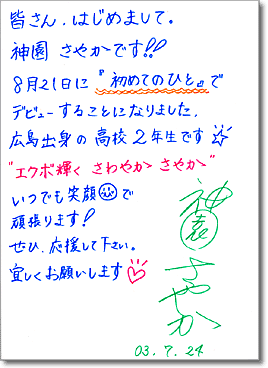 皆さん、はじめまして。
神園 さやかです!!
8月21日に『初めてのひと』で
デビューすることになりました。
広島出身の高校2年生です☆
"エクボ輝く さわやか さやか"
いつでも笑顔で
頑張ります!
ぜひ、応援して下さい。
宜しくお願いします♡
神園 さやか
03.7.24